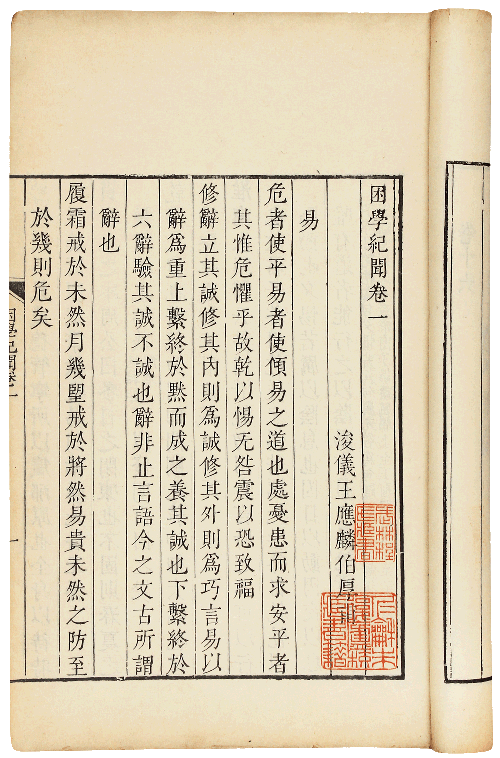 困學紀聞卷一
浚儀王應麟伯厚
易
危者使平易者使傾易之道也處憂患而求安平者
其惟危懼乎故乾以惕无咎震以恐致福
修辭立其誠修其內則爲誠修其外則爲巧言易以
辭爲重上繫終於黙而成之養其誠也下繫終於
六辭驗其誠不誠也辭非止言語今之文古所謂
辭也
履霜戒於未然月幾朢戒於將然易貴未然之防至
於幾則危矣
困學紀聞卷一
一